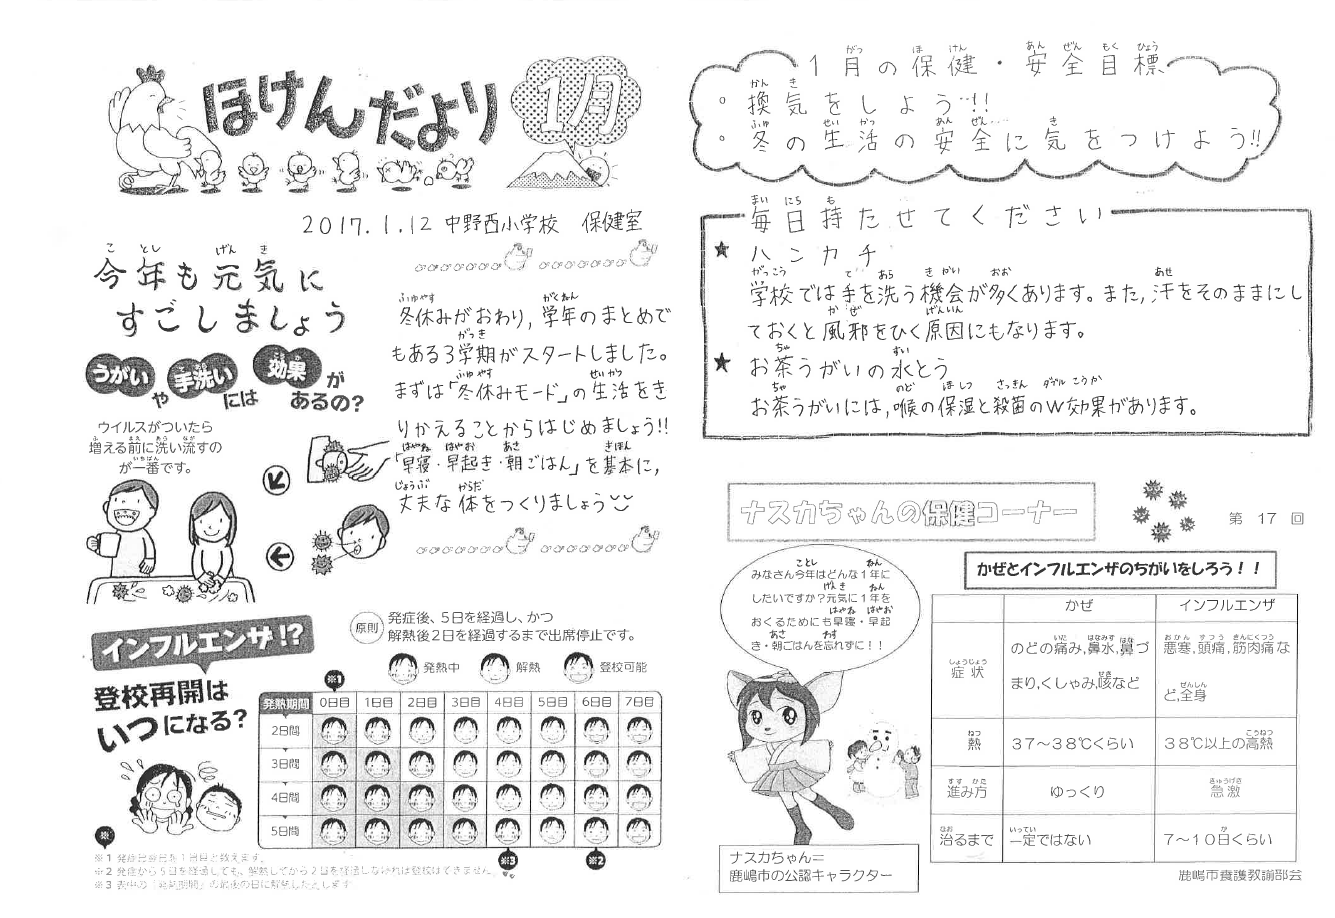 ほけんだより
1月
2017.1.12 中野西小学校 保健室
今年も元気に
すごしましょう
うがいや手洗いには効果があるの？
ウイルスがついたら
増える前に洗い流すの
が一番です。
冬休みがおわり，学年のまとめで
もある3学期がスタートしました。
まずは「冬休みモード」の生活をき
りかえることからはじめましょう!!
「早寝・早起き・朝ごはん」を基本に，
丈夫な体をつくりましょう
インフルエンザ!?
登校再開は
いつになる?
原則
発症後、5日を経過し、かつ
解熱後2日を経過するまで出席停止です。
発熱中 解熱 登校可能
※1
発熱期間 0日目 1日目 2日目 3日目 4日目 5日目 6日目 7日目
2日間
3日間
4日間
5日間
※
※3 ※2
※1 発症日翌日を1日目と数えます。
※2 発症から5日を経過しても、解熱してから2日を経過しなければ登校はできません。
※3 表中の「発熱期間」の最後の日に解熱したとします
1月の保健・安全目標
。換気をしよう!!
。冬の生活の安全に気をつけよう!!
毎日持たせてください
★ ハンカチ
学校では手を洗う機会が多くあります。また，汗をそのままにし
ておくと風邪をひく原因にもなります。
★ お茶うがいの水とう
お茶うがいには，喉の保湿と殺菌のW効果があります。
ナスカちゃんの保健コーナー
第 17 回
みなさん今年はどんな1年に
したいですか？元気に1年を
おくるためにも早寝・早起
き・朝ごはんを忘れずに！！
ナスカちゃん＝
鹿嶋市の公認キャラクター
かぜとインフルエンザのちがいをしろう！！
かぜ インフルエンザ
症状 のどの痛み,鼻水,鼻づ 悪寒,頭痛,筋肉痛な
まり,くしゃみ,咳など ど,全身
熱 37～38℃くらい 38℃以上の高熱
進み方 ゆっくり 急激
治るまで 一定ではない 7～10日くらい
鹿嶋市養護教諭部会